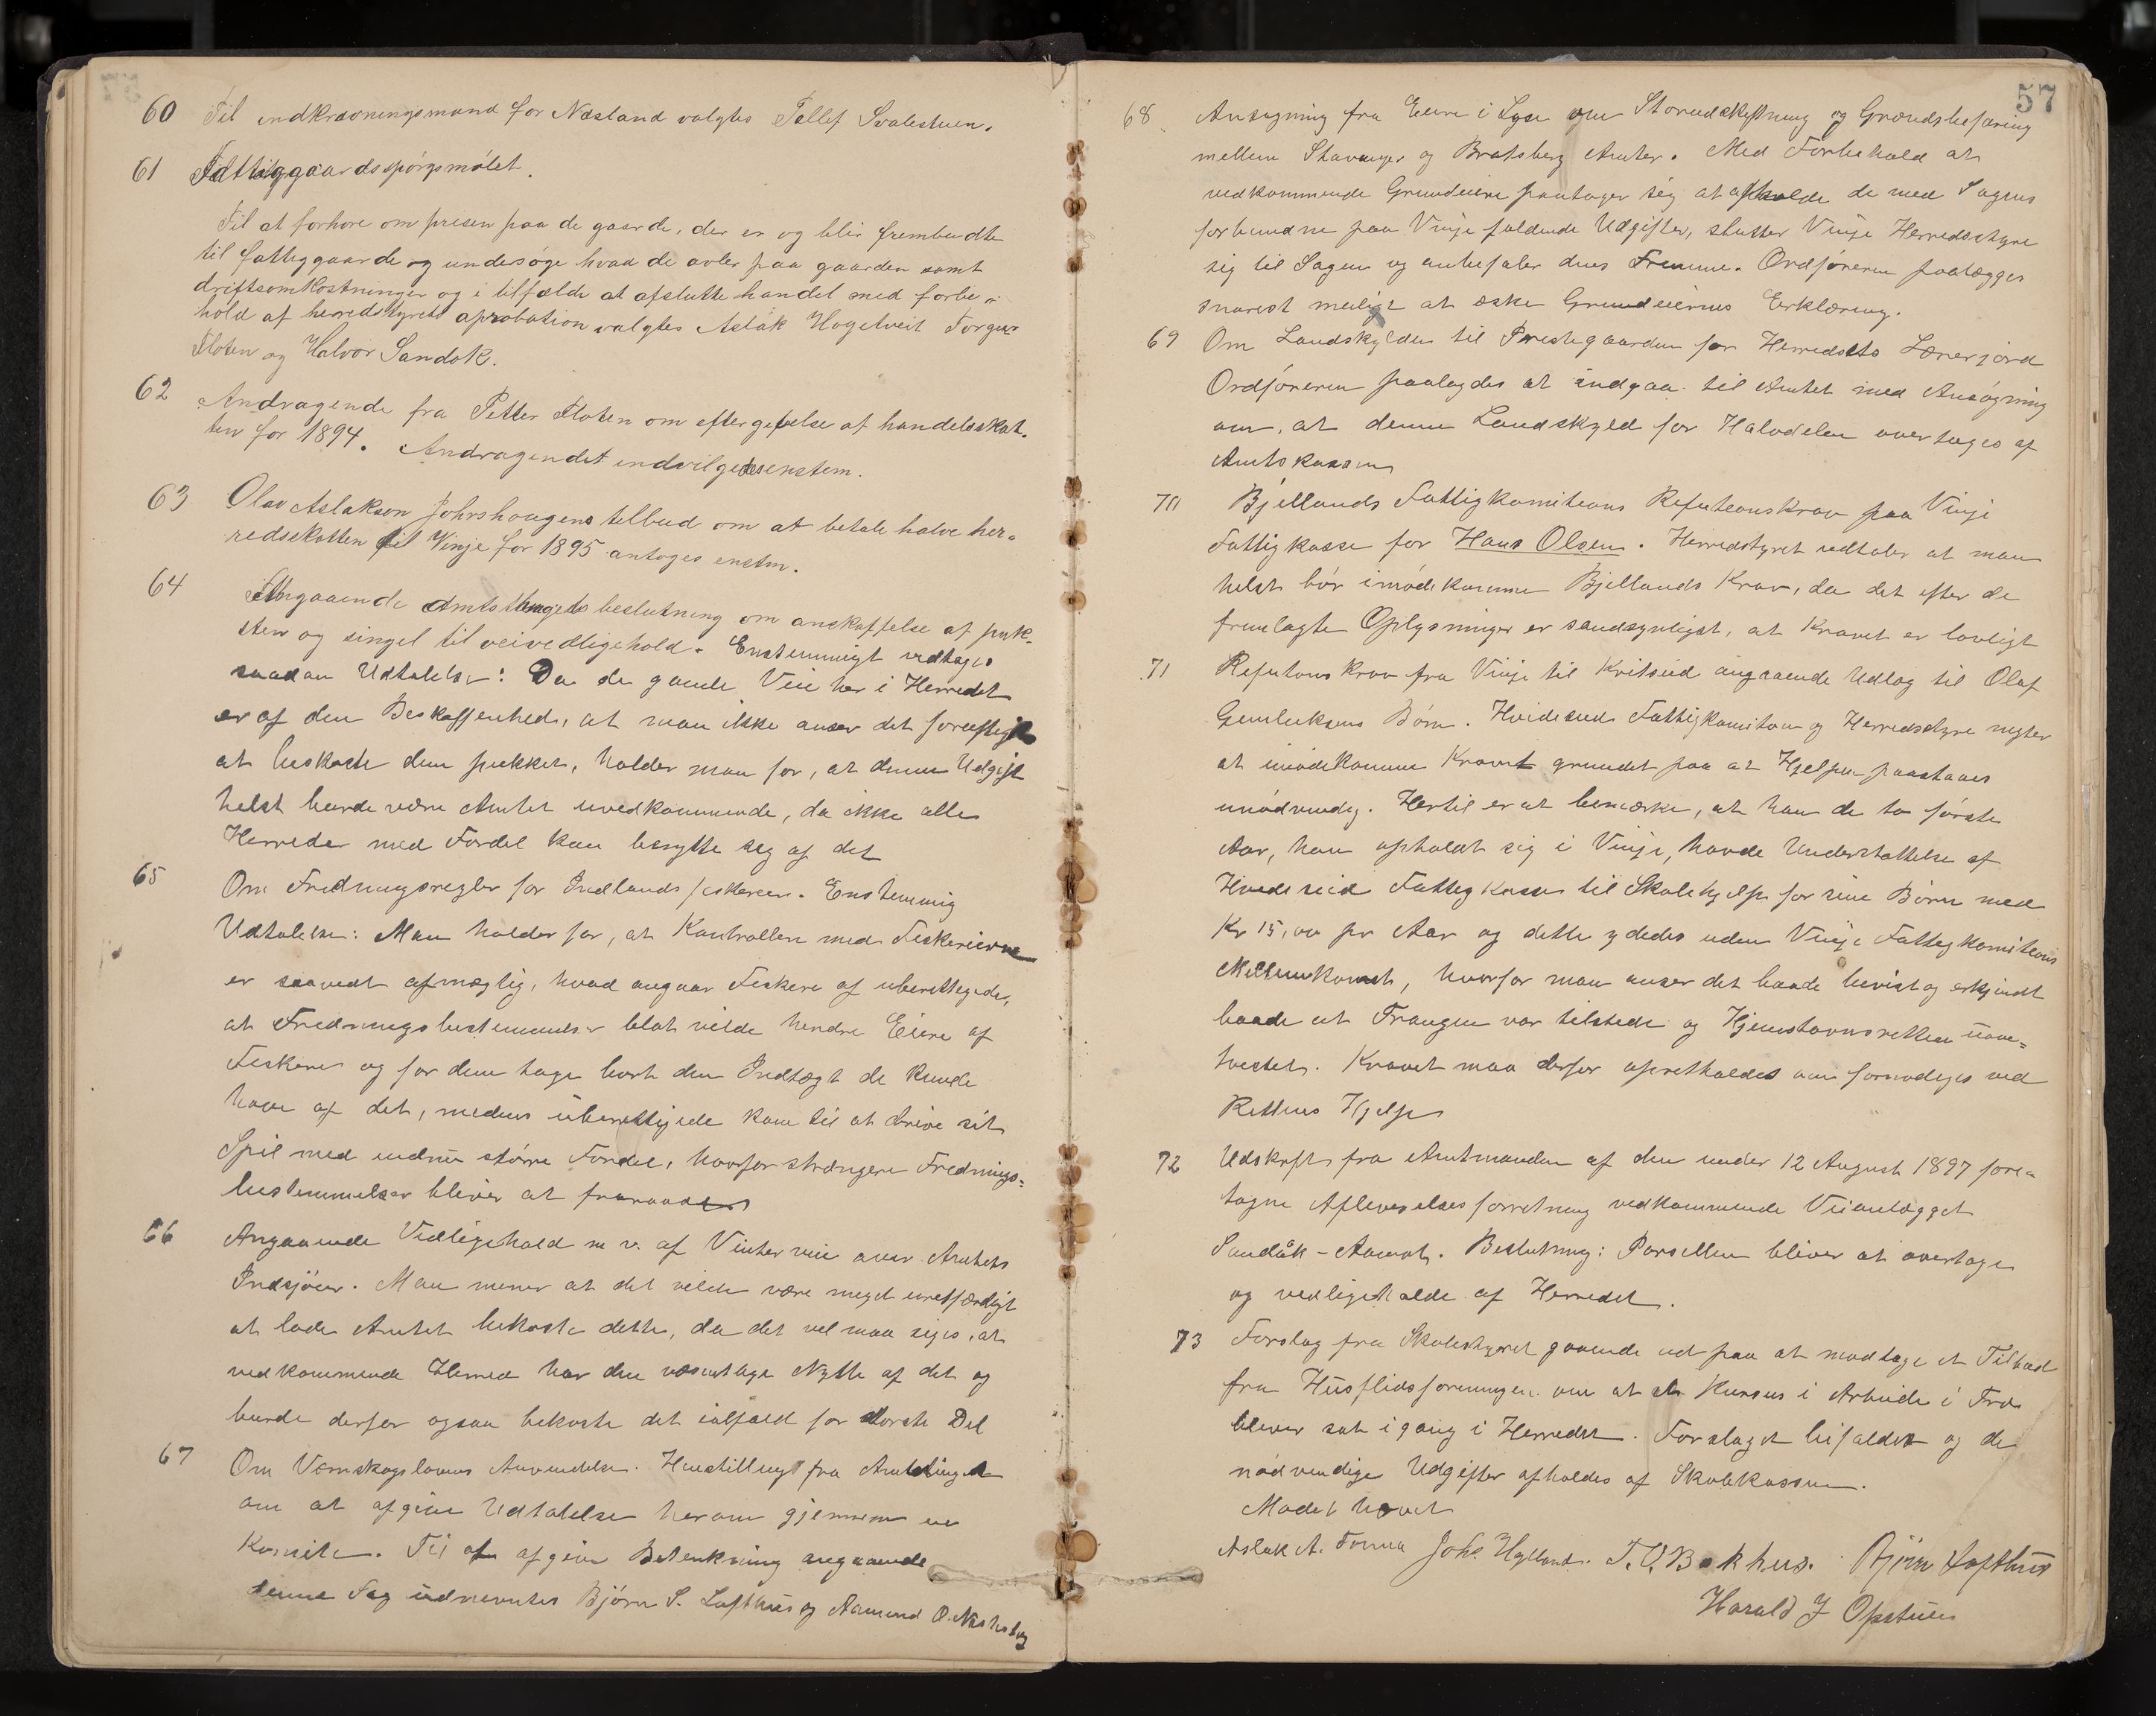 60 Til indkrævningsmand for Næsland valgtes Tellef Svalestuen.
61 Fattiggaardsspörgsmålet.
Til at forhøre om prisen paa de gaarde, der er og blir frembudte
til fattiggaarde og undersøge hvad de avler paa gaarden samt
driftsomkostninger og i tilfælde at afslutte handel med forbe-
hold af herredstyrets aprobation valgtes Aslak Hogetveit Torgus
Floten og Halvor Sandok.
62 Andragende fra Petter Floten om eftergivelse af handelsskat-
ten for 1894. Andragendet indvilgedes enstem.
63 Olav Aslakson Johrshougens tilbud om at betale halve her-
redsskatten til Vinje for 1895 antoges enstm.
64 Angaaende Amtsthingets beslutning om anskaffelse af puk-
sten og singel til veivedligehold. Enstemmigt vedtages
saadan Udtalelse: Da de gamle Veie her i Herredet
er af den Beskaffenhed, at man ikke anser det fornuftigt
at beskoste dem pukket, holder man for, at denne Udgift
helst burde være Amtet uvedkommende, da ikke alle
Herreder med Fordel kan benytte sig af det
65 Om Fredningsregler for Indlandsfiskerier. Enstemmig
Udtalelse: Man holder for, at Kontrollen med Fiskerierne
er saavidt afmægtig, hvad angaar Fiskere af uberettigede,
at Fredningsbestemmelser blot vilde hindre Eiere af
Fiskerier og for dem tage bort den Indtægt de kunde
have af det, medens uberettigede kom til at drive sit
Spil med endnu større Fordel, hvorfor strængere Frednings=
bestemmelser bliver at fraraades
66 Angaaende Vedligehold m. v. af Vinterveie over Amtets
Indsjöer. Man mener at det vilde være meget uretfærdigt
at lade Amtet bekoste dette, da det vel maa siges, at
vedkommende Herred har den væsentlige Nytte af det og
burde derfor ogsaa bekoste det ialfald for störste Del
67 Om Vernskogslovens Anvendelse. Henstilling fra Amtstinget
om at afgive Udtalelse herom gjennem en
Komite. Til at afgive Betenkning angaaende
denne Sag udnevntes Björn S. Lofthus og Aamund O.
57
68 Ansøgning fra Eiere i Lyse om Storudskiftning og Grændsbefaring
mellem Stavanger og Bratsberg Amter. Med Forbehold at
vedkommende Grundeiere paatager sig at afholde de med Sagens
forbundne paa Vinje faldende Udgifter, slutter Vinje Herredsstyre
sig til Sagen og anbefaler dens Fremme. Ordföreren paalægges
snarest muligt at æske Grundeiernes Erklæring.
69 Om Landskylden til Prestegaarden for Herredets Lærerjord
Ordföreren paalagdes at indgaa til Amtet med Ansögning
om, at denne Landskyld for Halvdelen overtages af
Amtskassen
70 Bjellands Fattigkomiteens Refutionskrav paa Vinje
Fattigkasse for Hans Olsen. Herredstyret udtaler at man
helst bör imödekomme Bjellands Krav, da det efter de
fremlagte Oplysninger er sandsynligst, at Kravet er lovligt
71 Refutionskrav fra Vinje til Kviteseid angaaende Udlæg til Olaf
Börn. Hvideseids Fattigkomiteen og Herredsstyre negter
at imödekomme Kravet grundet paa at Hjelpen paastaaes
unödvendig. Hertil er at bemærke, at han de to förste
Aar, han opholdt sig i Vinje, havde Understøttelse af
Hvideseid Fattigkasse til Skolehjelp for sine Börn med
Kr 15,00 pr Aar og dette ydedes uden Vinje Fattigkomiteens
Mellemkomst, hvorfor man anser det baade bevist og erkjendt
baade at Trangen var tilstede og Hjemstavnsretten uom-
tvistet. Kravet maa derfor opretholdes om fornødiges ved
Rettens Hjelp
72 Udskrift fra Amtmanden af den under 12 August 1897 fore-
tagne Afleverelsesforretning vedkommende Veianlægget
Sandåk - Aamot. Beslutning: Parsellen bliver at overtage
og vedligeholde af Herredet.
73 Forslag fra Skolestyret gaaende ud paa at modtage et Tilbud
fra Husflidsforeningen om at et Kursus i Arbeide i Træ
bliver sat igang i Herredet. Forslaget bifaldes og de
nödvendige Udgifter afholdes af Skolekassen.
Mödet hævet
Aslak A. Tonna Johs. Hylland. T. O. Bakhus. Björn Lofthus
Harald J Opstuen